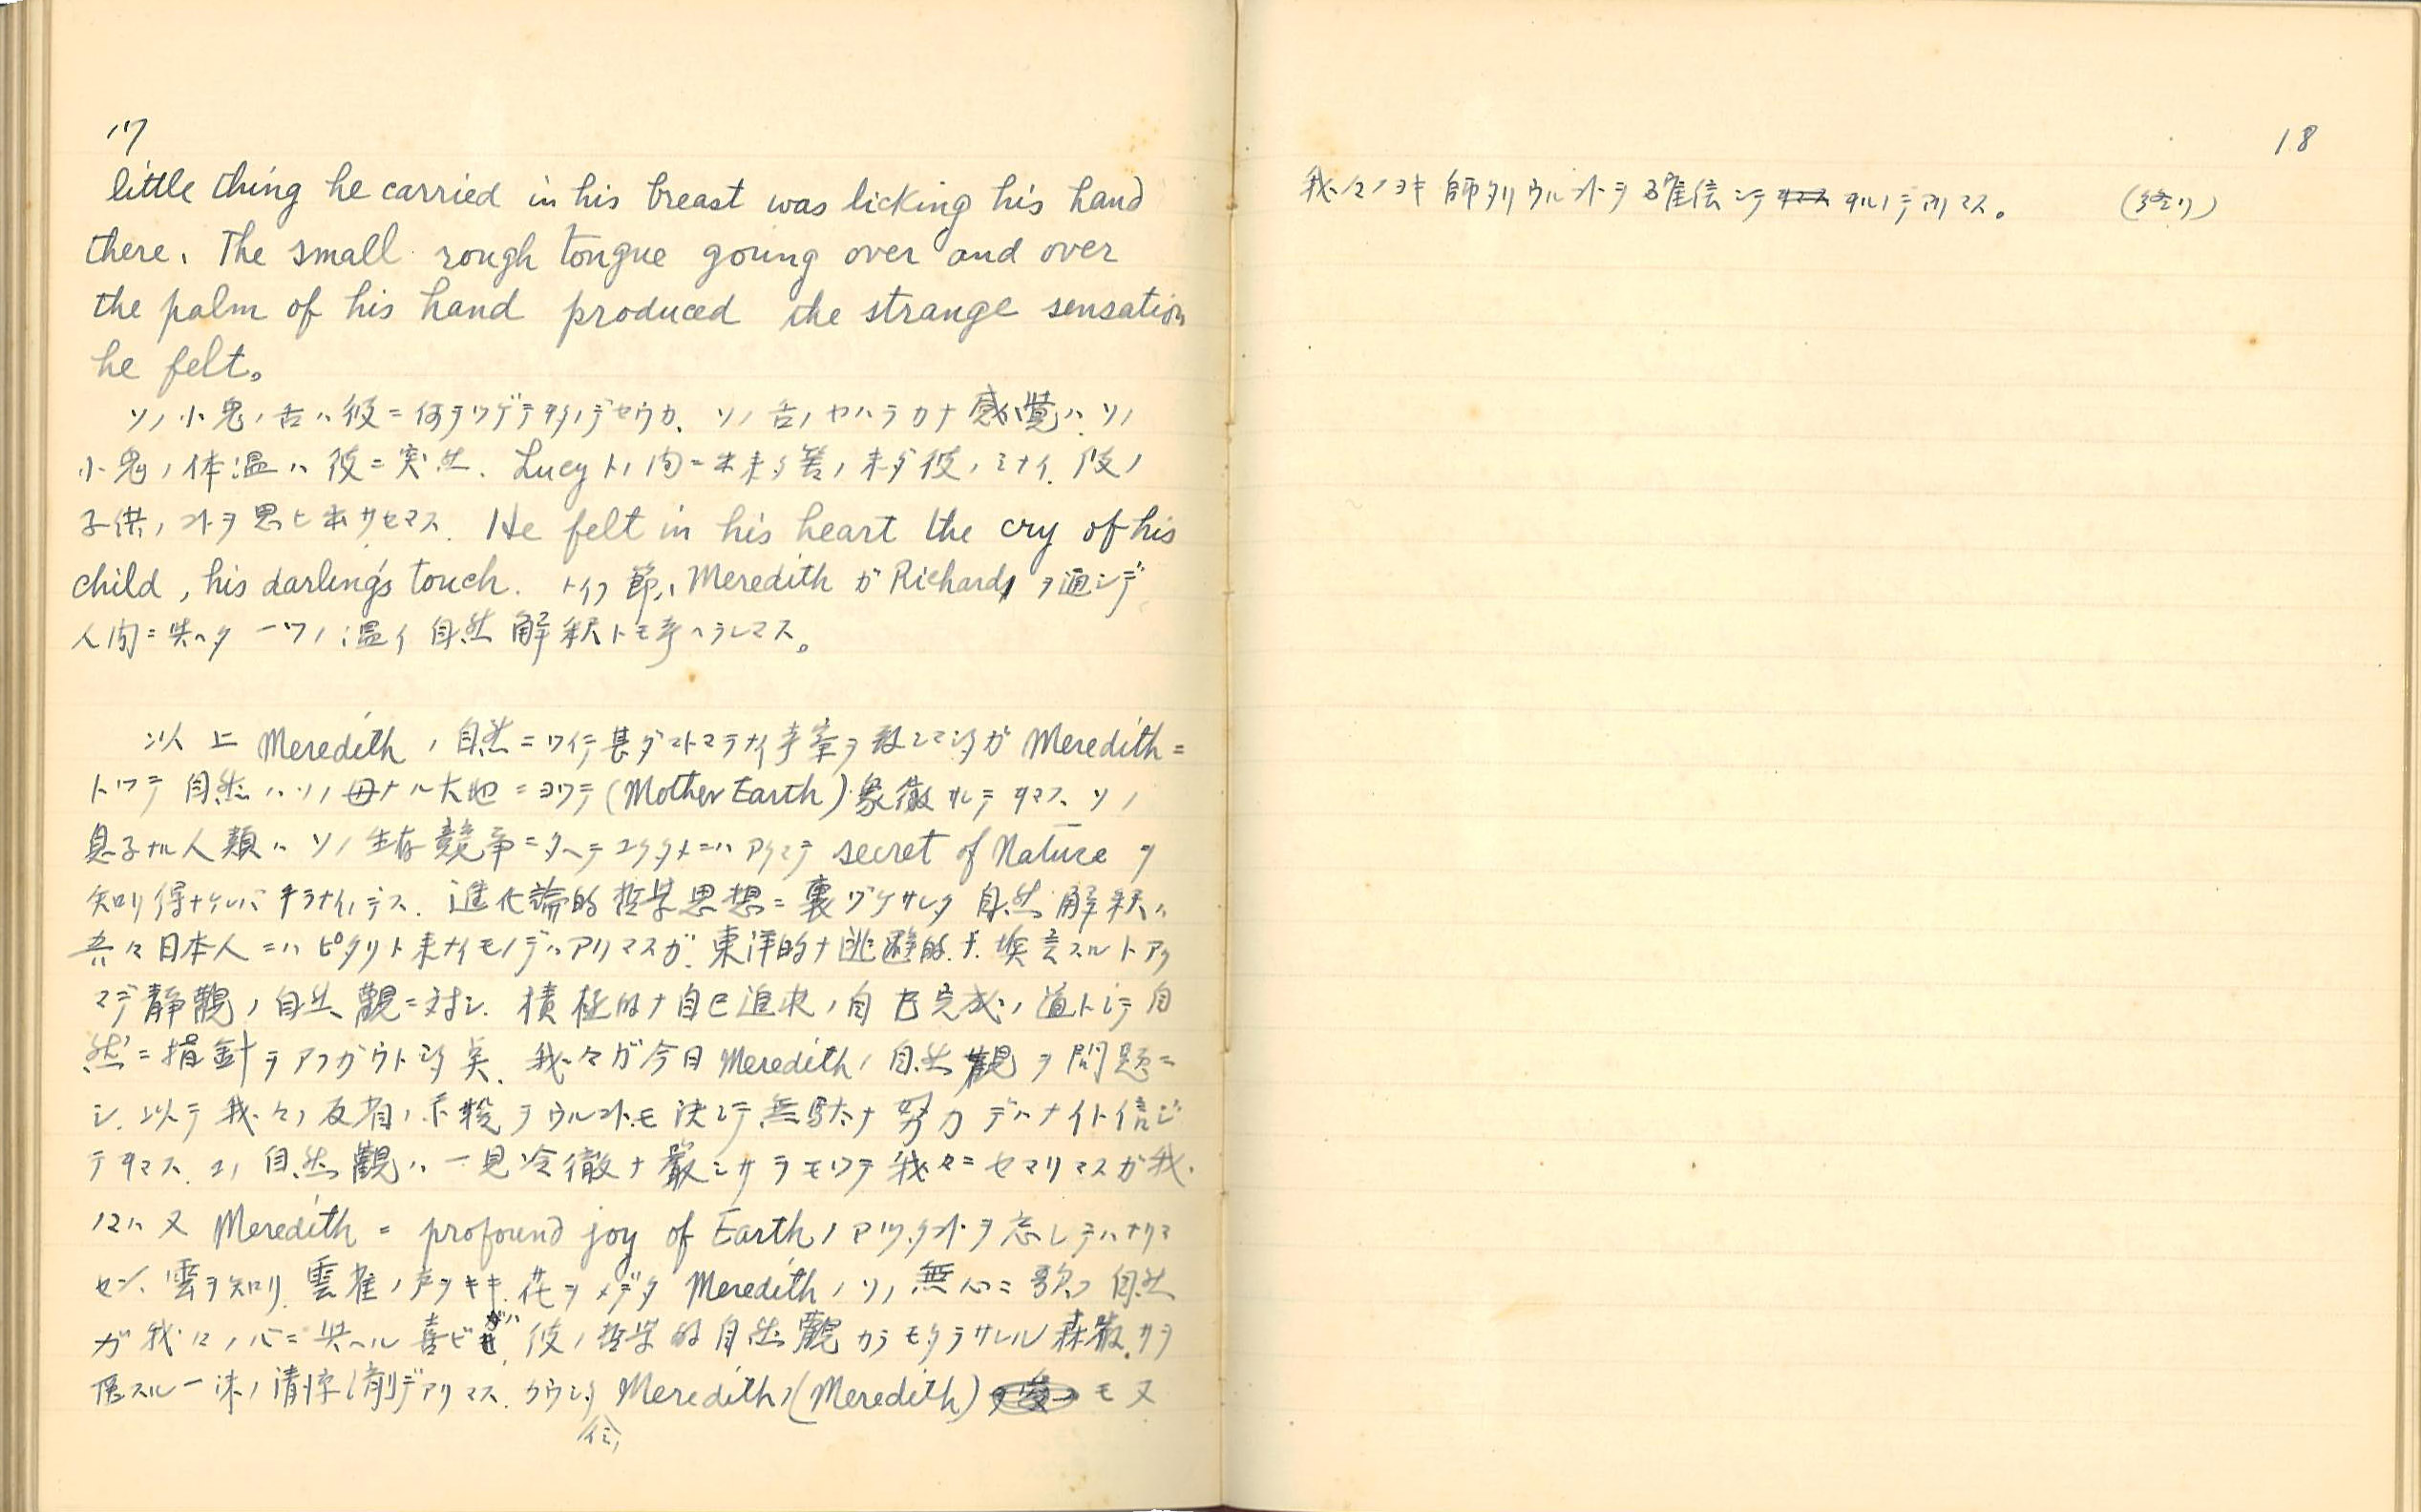 17
little thing he carried in his breast was licking his hand
there. The small rough tongue going over and over
the palm of his hand produced the strange sensation
he felt。
ソノ小兎ノ舌ハ彼ニ何ヲツゲテヰタノデセウカ、ソノ舌ノヤハラカナ感覚ハ、ソノ
小兎ノ体温ハ彼ニ突然、Lucyトノ間ニ出来タ筈ノ未ダ彼ノミナイ、彼ノ
子供ノコトヲ思ヒ出サセマス. He felt in his heart the cry of his
child, his darling's touch. トイフ節ハ Meredith ガ Richard ヲ通シテ
人間ニ與ヘタ一ツノ温イ自然解釈トモ考ヘラレマス。
以上 Meredith ノ自然ニツイテ甚ダマトマラナイ考察ヲ致シマシタガ Meredith ニ
トツテ自然ハソノ母ナル大地ニヨツテ (Mother Earth) 象徴サレテヰマス、ソノ
息子ナル人類ハソノ生存競争ニタヘテユクタメニハアクマデ secret of Nature ヲ
知リ得ナケレバナラナイノデス. 進化論的哲学思想ニ裏ヅケサレタ自然解釈ハ
吾々日本人ニハピタリト来ナイモノデハアリマスガ、東洋的ナ逃避的ナ、換言スルトアク
マデ静観ノ自然観ニ対シ、積極的ナ自己追求ノ自己完成ノ道トシテ自
然ニ指針ヲアフガウトシタ矣、我々ガ今日 Meredith ノ自然観ヲ問題ニ
シ、以テ我々ノ反省ノ示教ヲウルコトモ決シテ無駄ナ努力デハナイト信ジ
テヰマス、コノ自然観ハ一見冷徹ナ厳シサヲモツテ我々ニセマリマスガ我
々ハ又 Meredith ニ profound joy of Earth ノアツタコトヲ忘レテハナリマ
セン、雲ヲ知リ、雲雀ノ声ヲキキ、花ヲメデタ Meredith ノ、ソノ無心ニ歌フ自然
ガ我々ノ心ニ與ヘル喜ビガ、彼ノ哲学的自然観カラモタラサレル森厳サヲ
医スル一沫ノ清涼剤デアリマス、カウシタ Meredith ノ (Meredith) モ又
18
我々ノヨキ師タリウルコトヲ確信シテヰルノデアリマス。 (終リ)